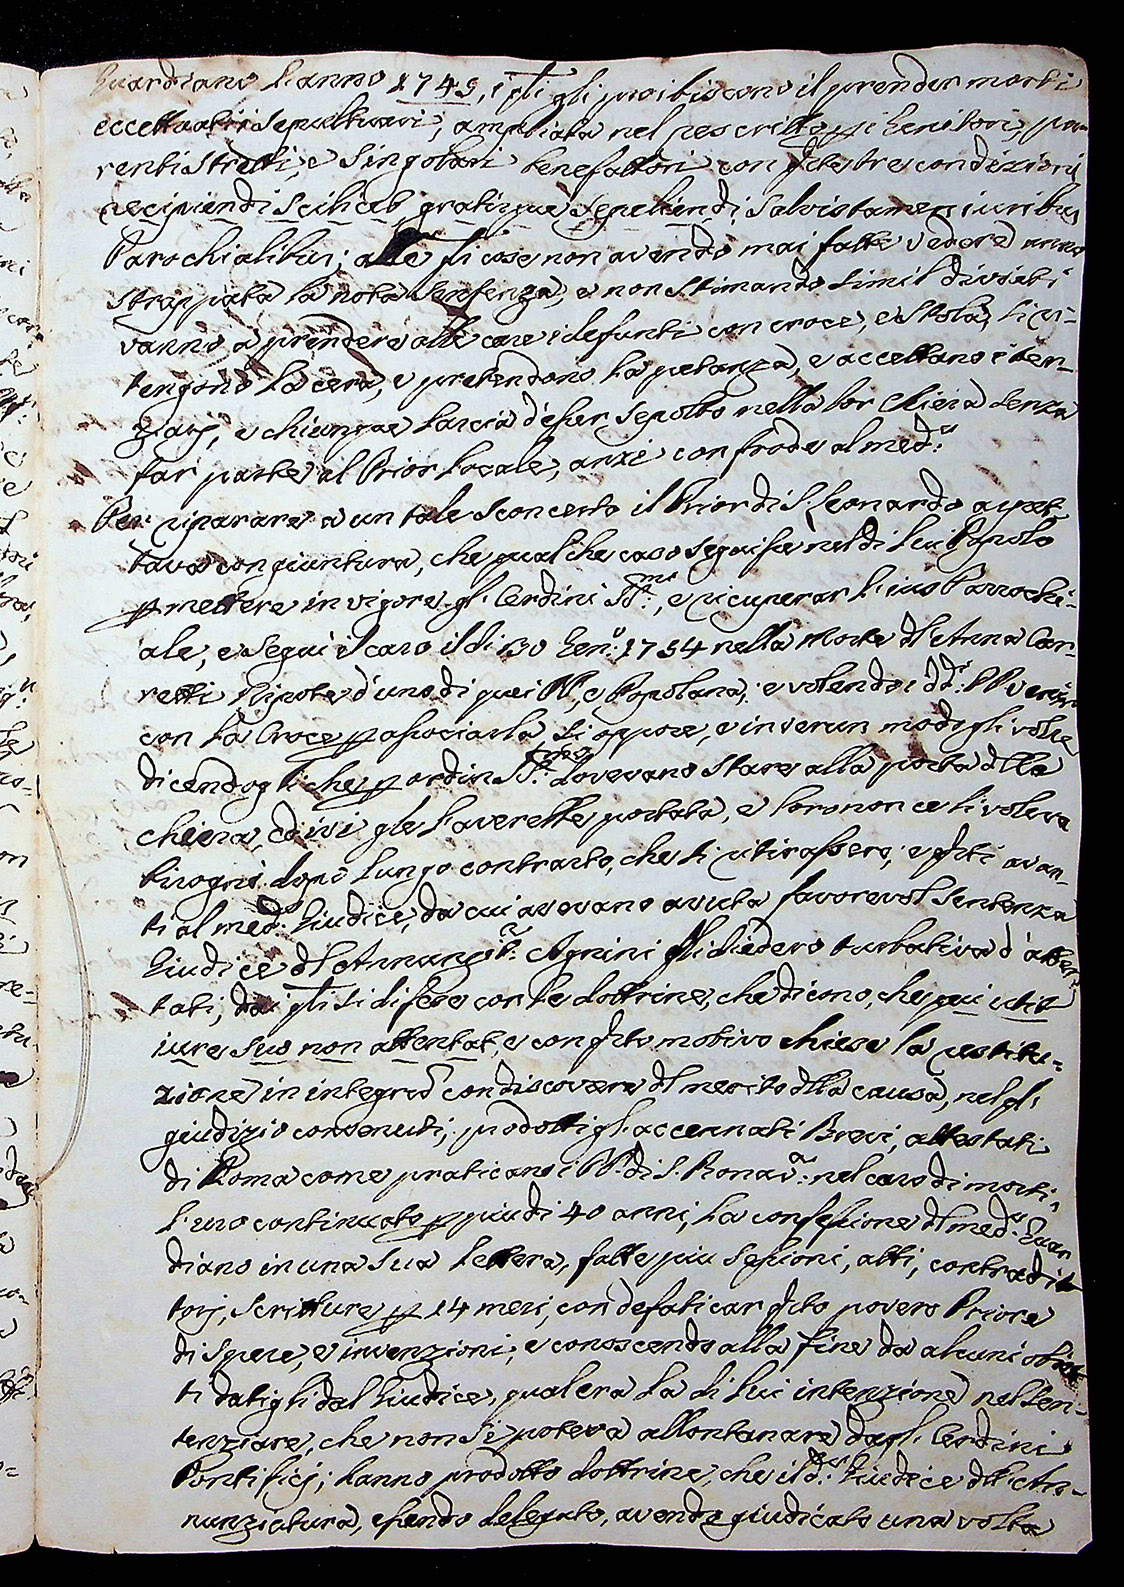 Guardiano l'anno 1745, i qli gli proibiscono il prender morti
eccettuati i Sepoltuari, ampliata nel rescritto p i Genitori, pa=
renti stretti, e singolari benefattori con qste tre condizioni
recipiendi scilicet gratis, que sepeliendi, salvis tamen iuribus
Parochialibus; alle qli cose non avendo mai fatte vedere anno
strappata la nota sentenza, e non stimando simil divieti
vanno a prendere alle case i defunti con croce, e stola, si ri=
tengono la cera, e pretendono la pietanza, e accettano i ter=
ziarj, e chiunque lascia d'esser sepolto nella lor chiesa senza
far parte al Prior locale, anzi con frode al med:o
Per riparare a un tale sconcerto il Prior di S. Leonardo aspet
tava congiuntura, che qualche caso seguisse nel di lui Popolo
p mettere in vigore gl'Ordini SSmi:, e ricuperar l'ius Parrochi=
ale, e segui il caso il di 30 Gen:o 1754 nella Morte dl Anna Cer=
retti Nipote d'uno di quei PP. e Popolana; e volendo i dd:i PP venire
con la Croce p associarla si oppose, e in verun modo gli volle
dicendogli che p ordin SSmo: dovevano stare alla porta dlla
chiesa, ed ivi gle l'averebbe portata, e loro non ce li voleva
bisognò dopo lungo contrasto, che si ritirassero; e qsti avan=
ti al med:o Giudice, da cui avevano avuta favorevol sentenza
Giudice dl Annunz:ra Agnini gli diedero turbativa d'atten
tati, dai qli si difese con le dottrine, che dicono, che qui utit
iure suo non attentat, e con qsto motivo chiese la restitu=
zione in integrum con discovere dl merito dlla causa, nel ql
giudizio convenuti; prodotti gl'accennati Brevi, attestati
di Roma come praticano i PP. di S. Bonav:a nel caso di morti,
l'uso continuato p piu di 40 anni, la confessione dl med:o Guar
diano in una sua lettera, fatte piu sessioni, atti, contradit
torj, scritture p 14 mesi, con defaticar qsto povero Priore
di spese, e invenzioni, e conoscendo alla fine da alcuni obiet
ti datigli dal Giudice, qual era la di lui intenzione nel sen=
tenziare, che non si poteva allontanare dagl'Ordini
Pontificj; hanno prodotto dottrine, che il d:o Giudice dll'An=
nunziatura, essendo delegato, avendo giudicato una volta